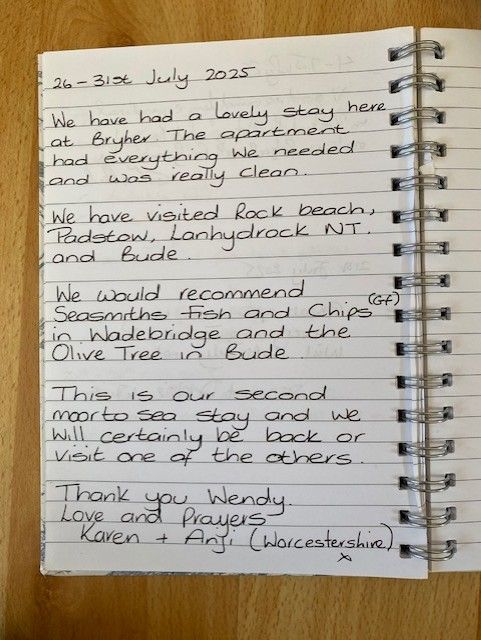 26 - 31st July 2025
We have had a lovely stay here
at Bryher. The apartment
had everything we needed
and was really clean.
We have visited Rock beach,
Padstow, Lanhydrock NT.
and Bude.
We would recommend
Seasmiths Fish and Chips (GF)
in Wadebridge and the
Olive Tree in Bude.
This is our second
moor to sea stay and we
will certainly be back or
visit one of the others.
Thank you Wendy.
Love and Prayers
Karen + Anji (Worcestershire)
x